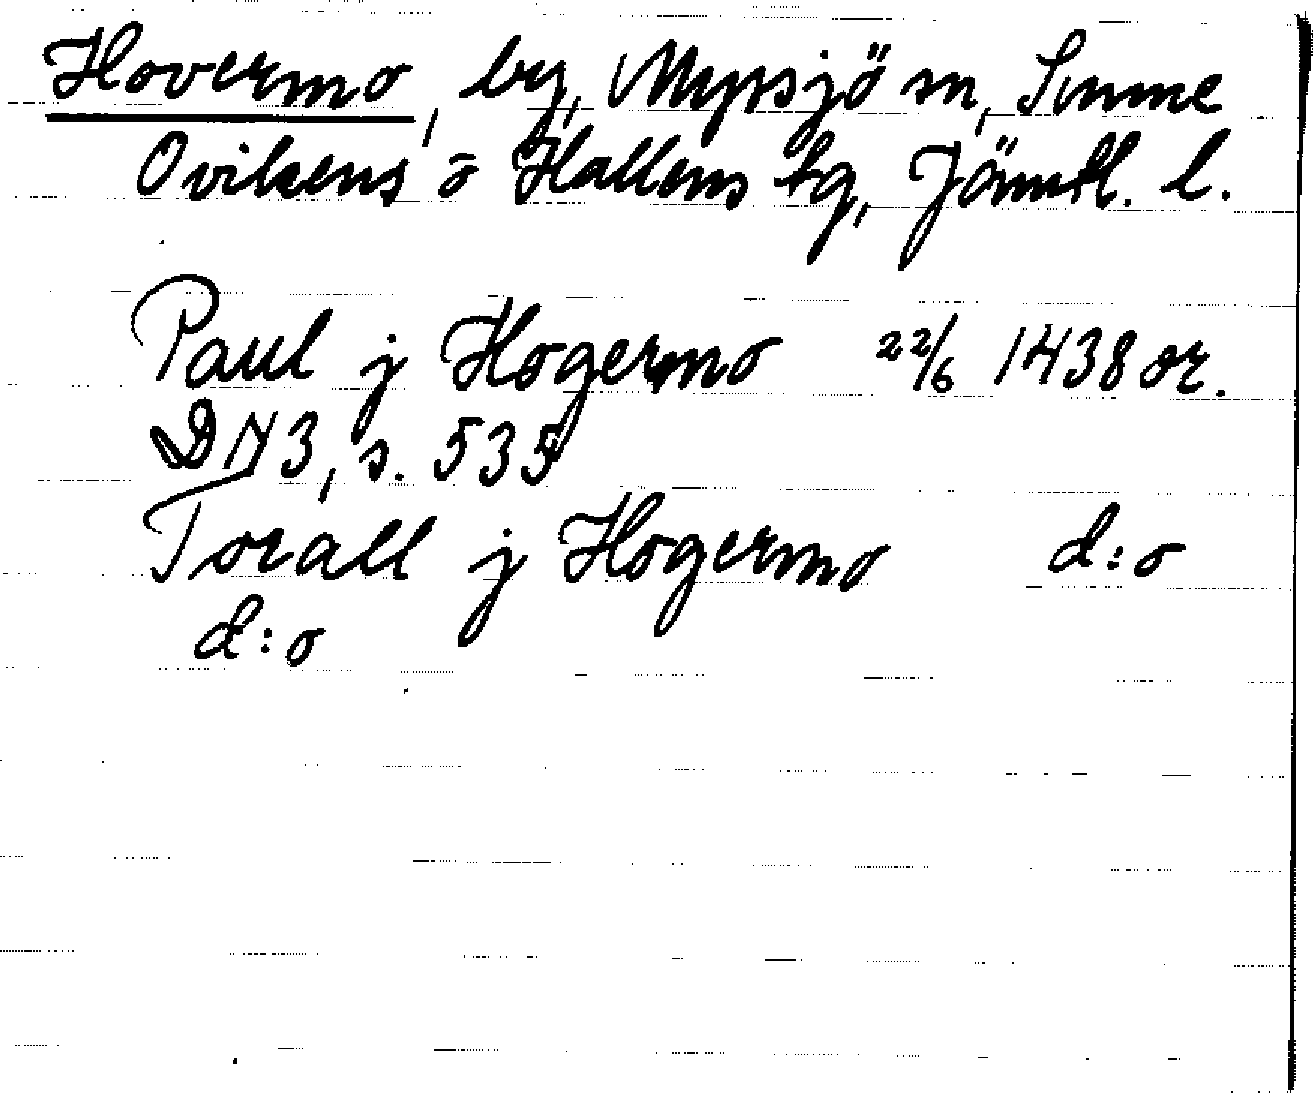 Hovermo, by, Myssjö sn, Sunne
Ovikens o Hallens tg, Jämtl. l.
Paul j Hogermo 22/6 1438 or.
DN 3, s. 535
Torall j Hogermo d:o
d:o